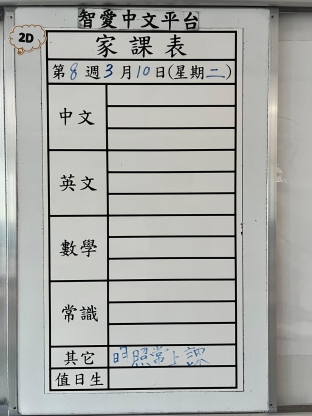 智愛中文平台
2D
家課表
第8週3月10日(星期二)
中文
英文
數學
常識
其它 照常上課
值日生